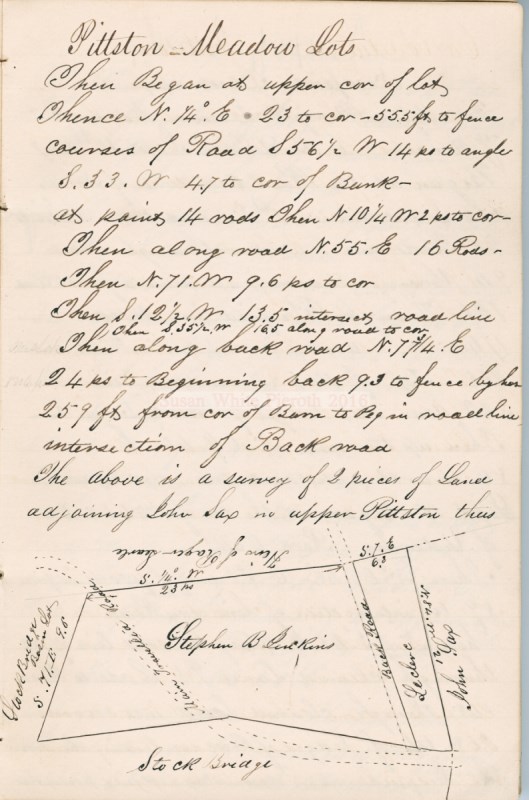 Pittston - Meadow Lots
Then Began at upper cor of lot
Thence N. 1/4° E 23 to cor - 55.5 ft to fence
courses of Road S 56 1/2 W 14 ps to angle
S. 33. W 47 to cor of Bunk -
at point 14 rods Then N 10 1/4 W 2 ps to cor -
Then along road N. 55. E 16 Rods -
Then N. 71. W 9.6 ps to cor
Then S. 12 1/2 W 13.5 intersect road line
Then S. 35 1/2. W 16.5 along road to cor
Then along back road N. 7 3/4. E
24 ps to Beginning back 9.3 to fence by her
259 ft from cor of Barn to Beg in road line
intersection of Back road
The above is a survey of 2 pieces of Land
adjoining John Sax in upper Pittston thus
Susan White Pieroth 2016
Heir of Roger Searle
S. 1/4° W
23 ps
S. 7. E
6.3
Stock Bridge
Barn Lot
S. 71. E 9.6
Main Road
Stephen B Perkins
Back Road
Leclerc
John Sax
Stock Bridge